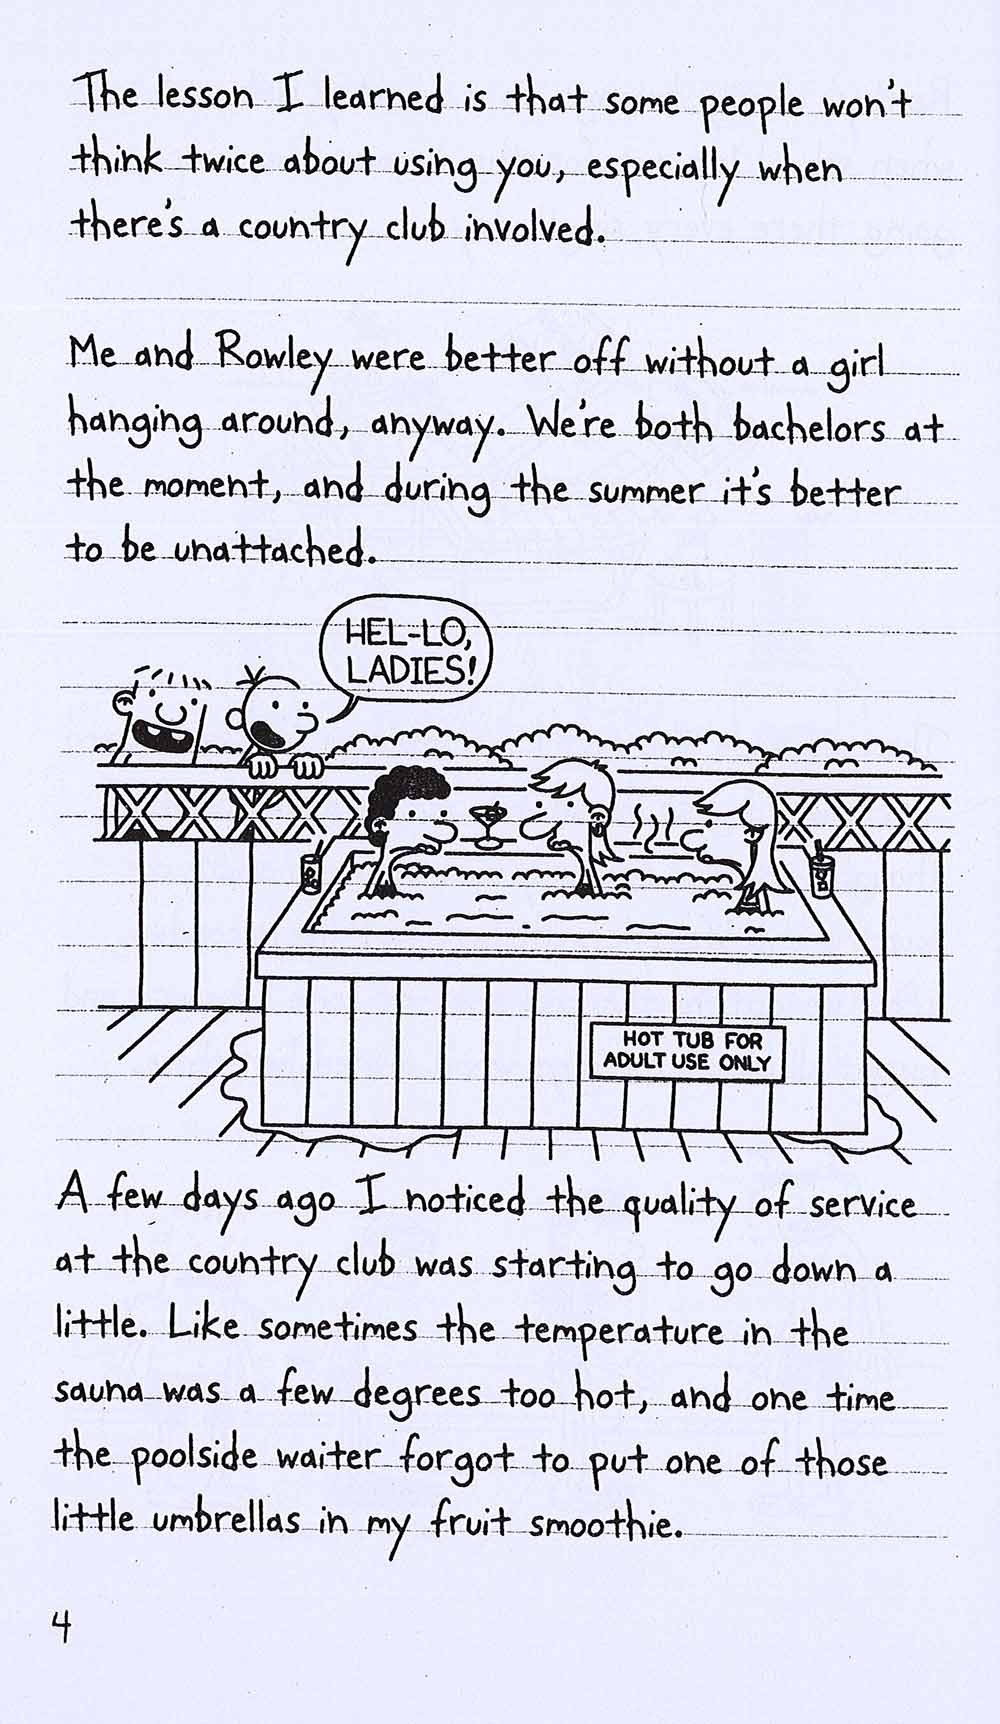 The lesson I learned is that some people won't
think twice about using you, especially when
there's a country club involved.
Me and Rowley were better off without a girl
hanging around, anyway. We're both bachelors at
the moment, and during the summer it's better
to be unattached.
HEL-LO,
LADIES!
HOT TUB FOR
ADULT USE ONLY
A few days ago I noticed the quality of service
at the country club was starting to go down a
little. Like sometimes the temperature in the
sauna was a few degrees too hot, and one time
the poolside waiter forgot to put one of those
little umbrellas in my fruit smoothie.
4